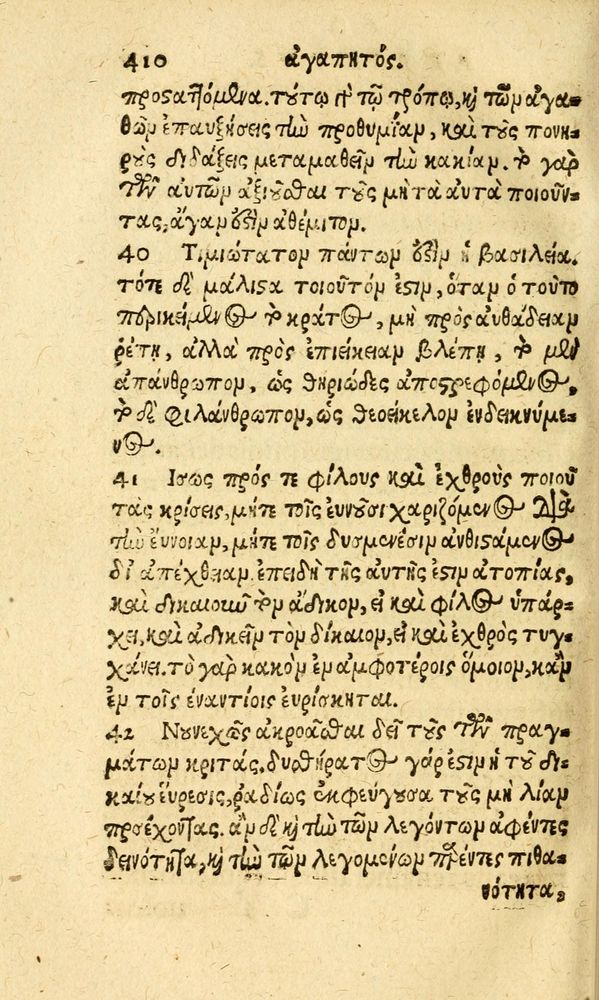 410 ἀγαπητός.
προσαπτόμενα. τούτῳ γὰρ τῷ τρόπῳ, καὶ τῶν ἀγα-
θῶν ἐπαυξήσεις τὴν προθυμίαν, καὶ τοὺς πονη-
ροὺς διδάξεις μεταμαθεῖν τὴν κακίαν. τὸ γὰρ
τῶν αὐτῶν ἀξιοῦσθαι τοὺς μὴ τὰ αὐτὰ ποιοῦν-
τας, ἄγαν ἐστὶν ἀθέμιτον.
40 Τιμιώτατον πάντων ἐστὶν ἡ βασιλεία.
τότε δὲ μάλιστα τοιοῦτόν ἐστιν, ὅταν ὁ τοῦτο
περικείμενος τὸ κράτος, μὴ πρὸς αὐθάδειαν
ρέπῃ, ἀλλὰ πρὸς ἐπιείκειαν βλέπῃ, τὸ μὲν
ἀπάνθρωπον, ὡς θηριῶδες ἀποστρεφόμενος,
τὸ δὲ φιλάνθρωπον, ὡς θεοείκελον ἐνδεικνύμε-
νος.
41 Ισως πρός τε φίλους καὶ ἐχθροὺς ποιοῦ
τὰς κρίσεις, μήτε τοῖς εὐνοῦσι χαριζόμενος διὰ
τὴν εὔνοιαν, μήτε τοῖς δυσμενέσιν ἀνθιστάμενος
δι ἀπέχθειαν. ἐπειδὴ τῆς αὐτῆς ἐστιν ἀτοπίας,
καὶ δικαιοῦν τὸν ἄδικον, εἰ καὶ φίλος ὑπάρ-
χει, καὶ ἀδικεῖν τὸν δίκαιον, εἰ καὶ ἐχθρὸς τυγ-
χάνει. τὸ γὰρ κακὸν ἐν ἀμφοτέροις ὅμοιον, κἂν
ἐν τοῖς ἐναντίοις εὑρίσκηται.
42 Νουνεχῶς ἀκροᾶσθαι δεῖ τοὺς τῶν πραγ-
μάτων κριτάς. δυσθήρατος γάρ ἐστιν ἡ τοῦ δι-
καίου εὕρεσις, ῥαδίως ἐκφεύγουσα τοὺς μὴ λίαν
προσέχοντας. ἂν δὲ καὶ τὴν τῶν λεγόντων ἀφέντες
δεινότητα, καὶ τὴν τῶν λεγομένων παρέντες πιθα-
νότητα,